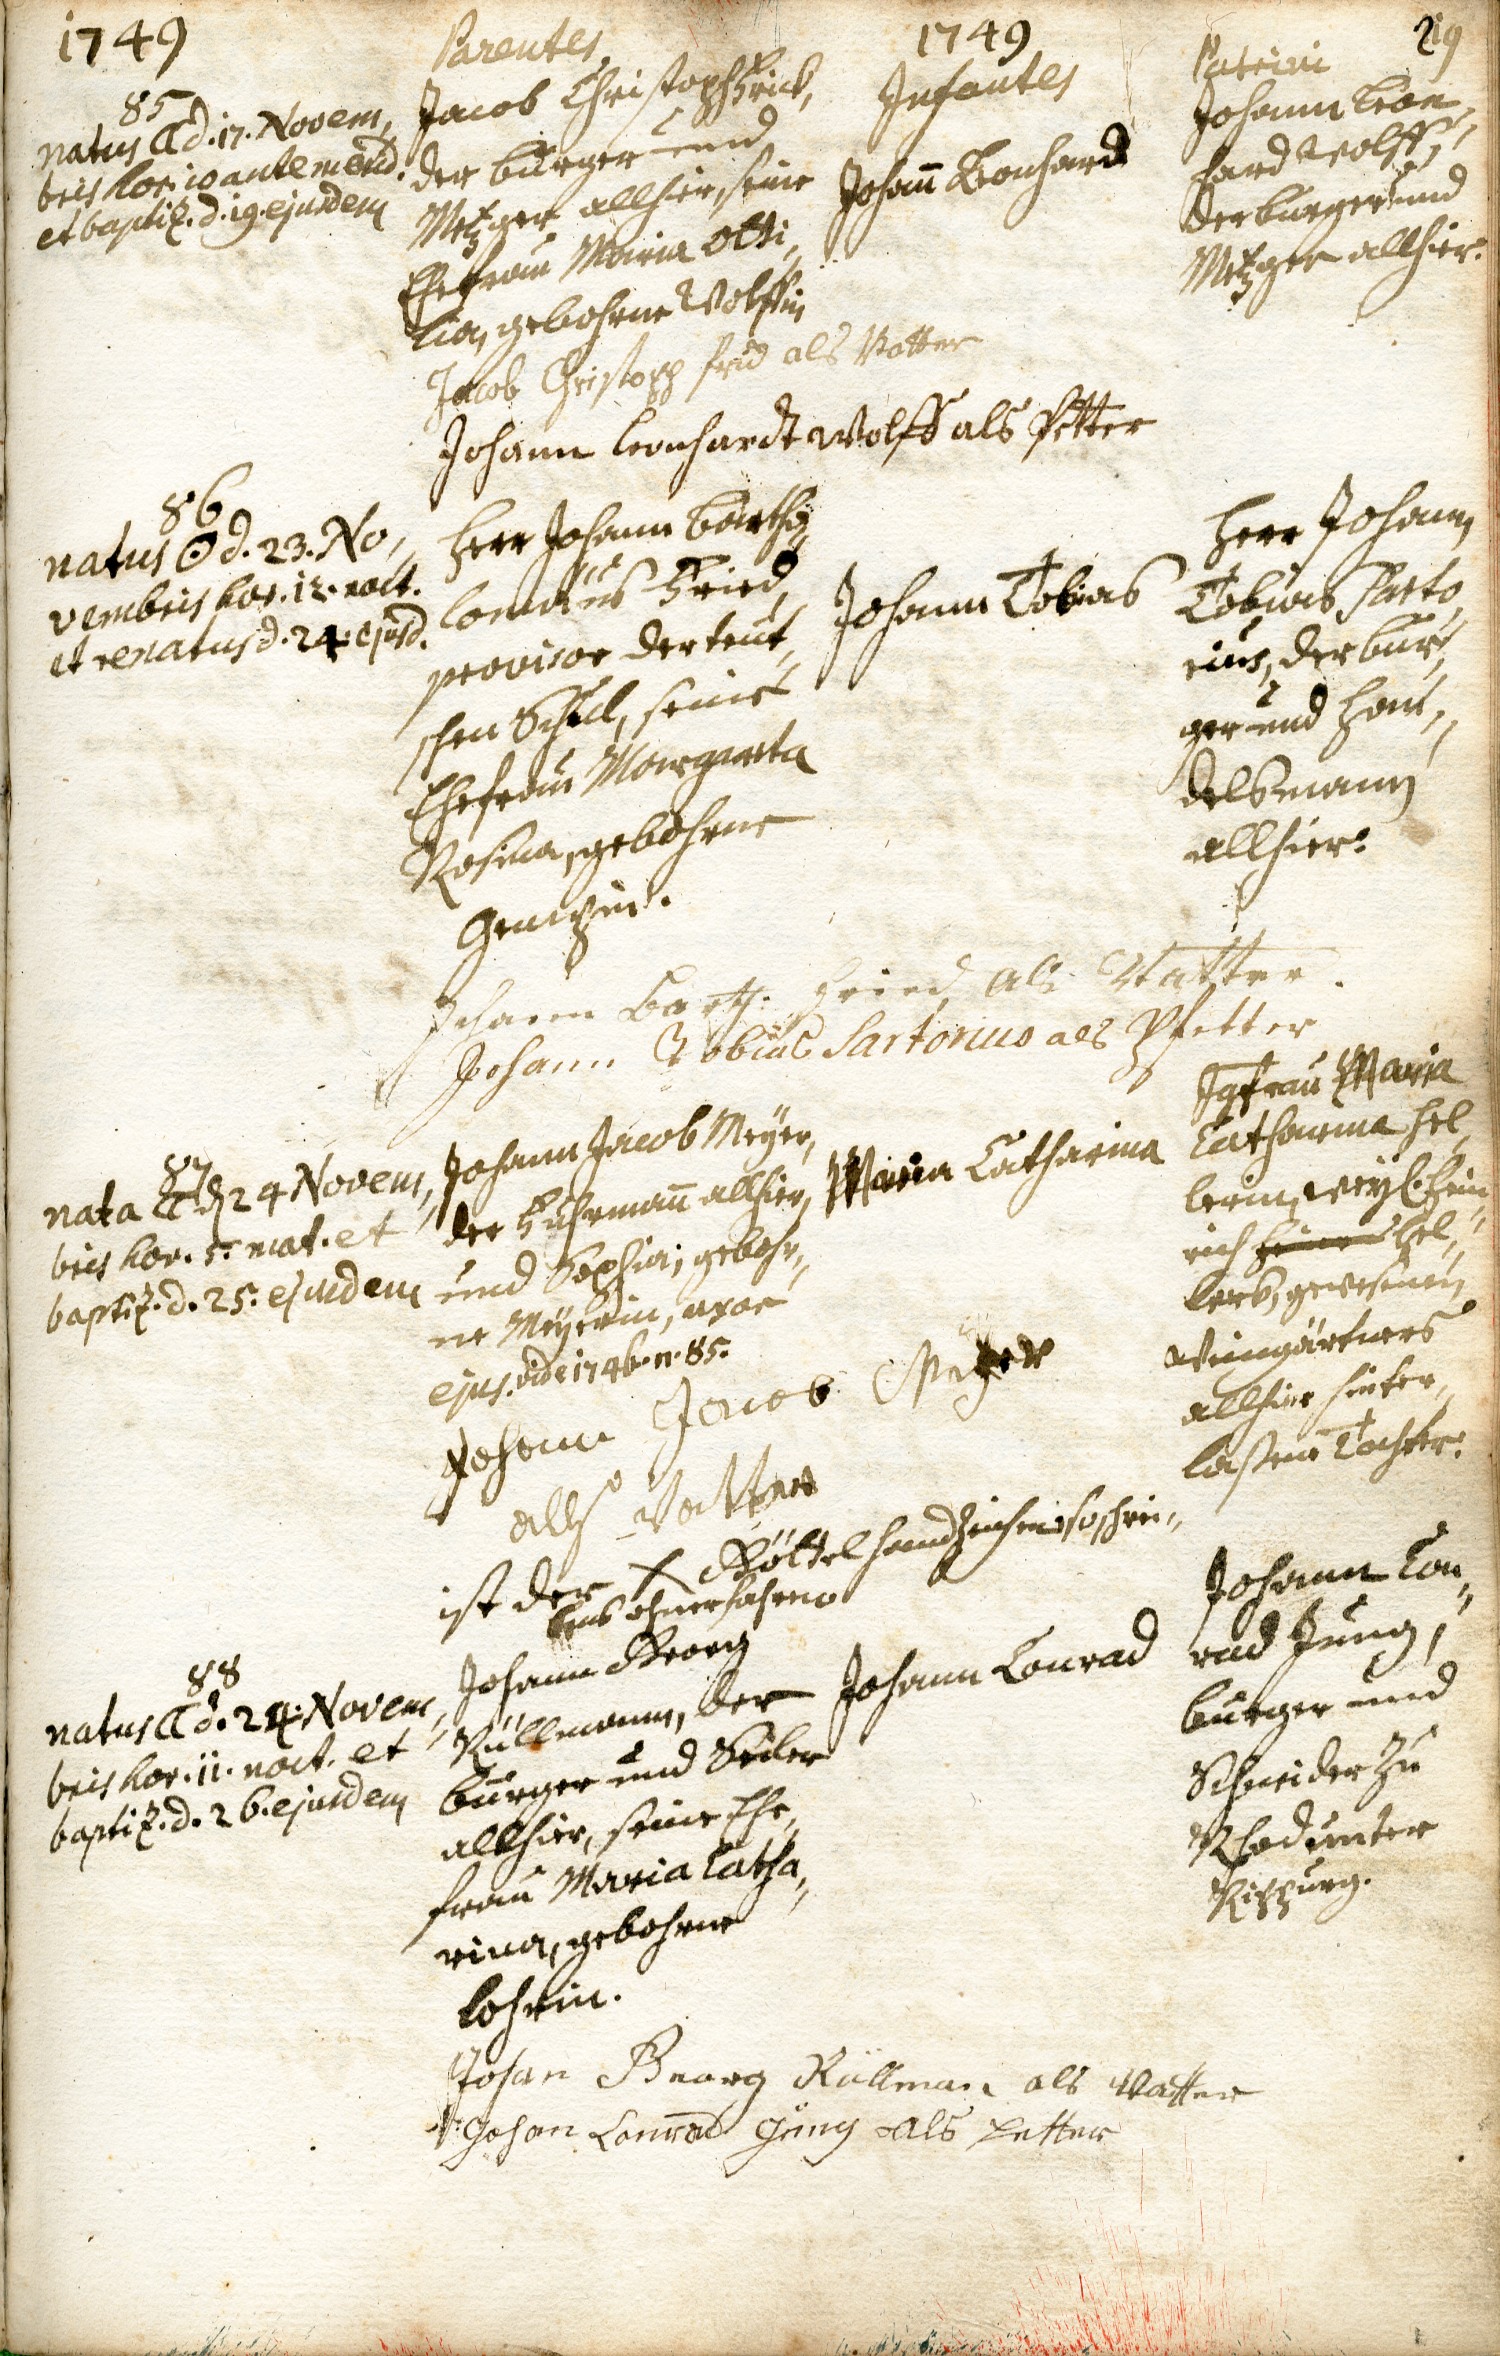 1749
Parentes
1749
Infantes
Patrini
219
85
natus ☾ d. 17. Novem,
bris hor. 10 ante merid.
et baptiz. d. 19. ejusdem
Jacob Christoph Frid,
der burger und
Metzger allhier, seine
Ehefrau Maria Otti,
lia, gebohrne Wolffin
Johann̅ Leonhard
Johann Leon,
hard Wolff,
der burger und
Metzger allhier.
Jacob Christoph frid als Vatter
Johann Leonhardt Wolff als Pfetter
86
natus ☉ d. 23. No,
vembris hor. 12. noct.
et renatus d. 24. ejusd.
Herr Johann Bartho,
lomäus Fried,
provisor der teut,
schen Schul, seine
Ehefrau Margareta
Rosina, gebohrne
Johann Tobias
Herr Johann
Tobias Sarto,
rius, der bur,
ger und Han,
delsmann
allhier.
Johann Barth. Fried als Vatter.
Johann Tobias Sartorius als Pfetter
87
nata ☾ d. 24 Novem,
bris hor. 5. mat. et
baptiz. d. 25. ejusdem
Johann Jacob Meyer,
der Fuhrmann̅ allhier,
und Sophia, gebohr,
ne Meyerin, uxor
ejus. vide 1746. n. 85.
Maria Catharina
Jgfrau Maria
Catharina Hel,
lerin, weyl. Hein,
rich Hel,
lers, gewesenen
Weingärtners
allhier hinter,
lassene Tochter.
Johann Jacob Meyer
alls Vatter
ist der X Göttel handzeichen so schrei,,
bens ohnerfahren
88
natus ☾ d. 24. Novem,
bris hor. 11. noct. et
baptiz. d. 26. ejusdem
Johann Georg
Rüllmann, der
burger und Seiler
allhier, seine Ehe,
frau Maria Catha,
rina, gebohrne
Lohrin.
Johann Conrad
Johann Con,
rad Jung,
burger und
Schneider zu
Rhod unter
Rippurg.
Johan Georg Rüllman als Vatter
Johan Conrad Jung als Petter